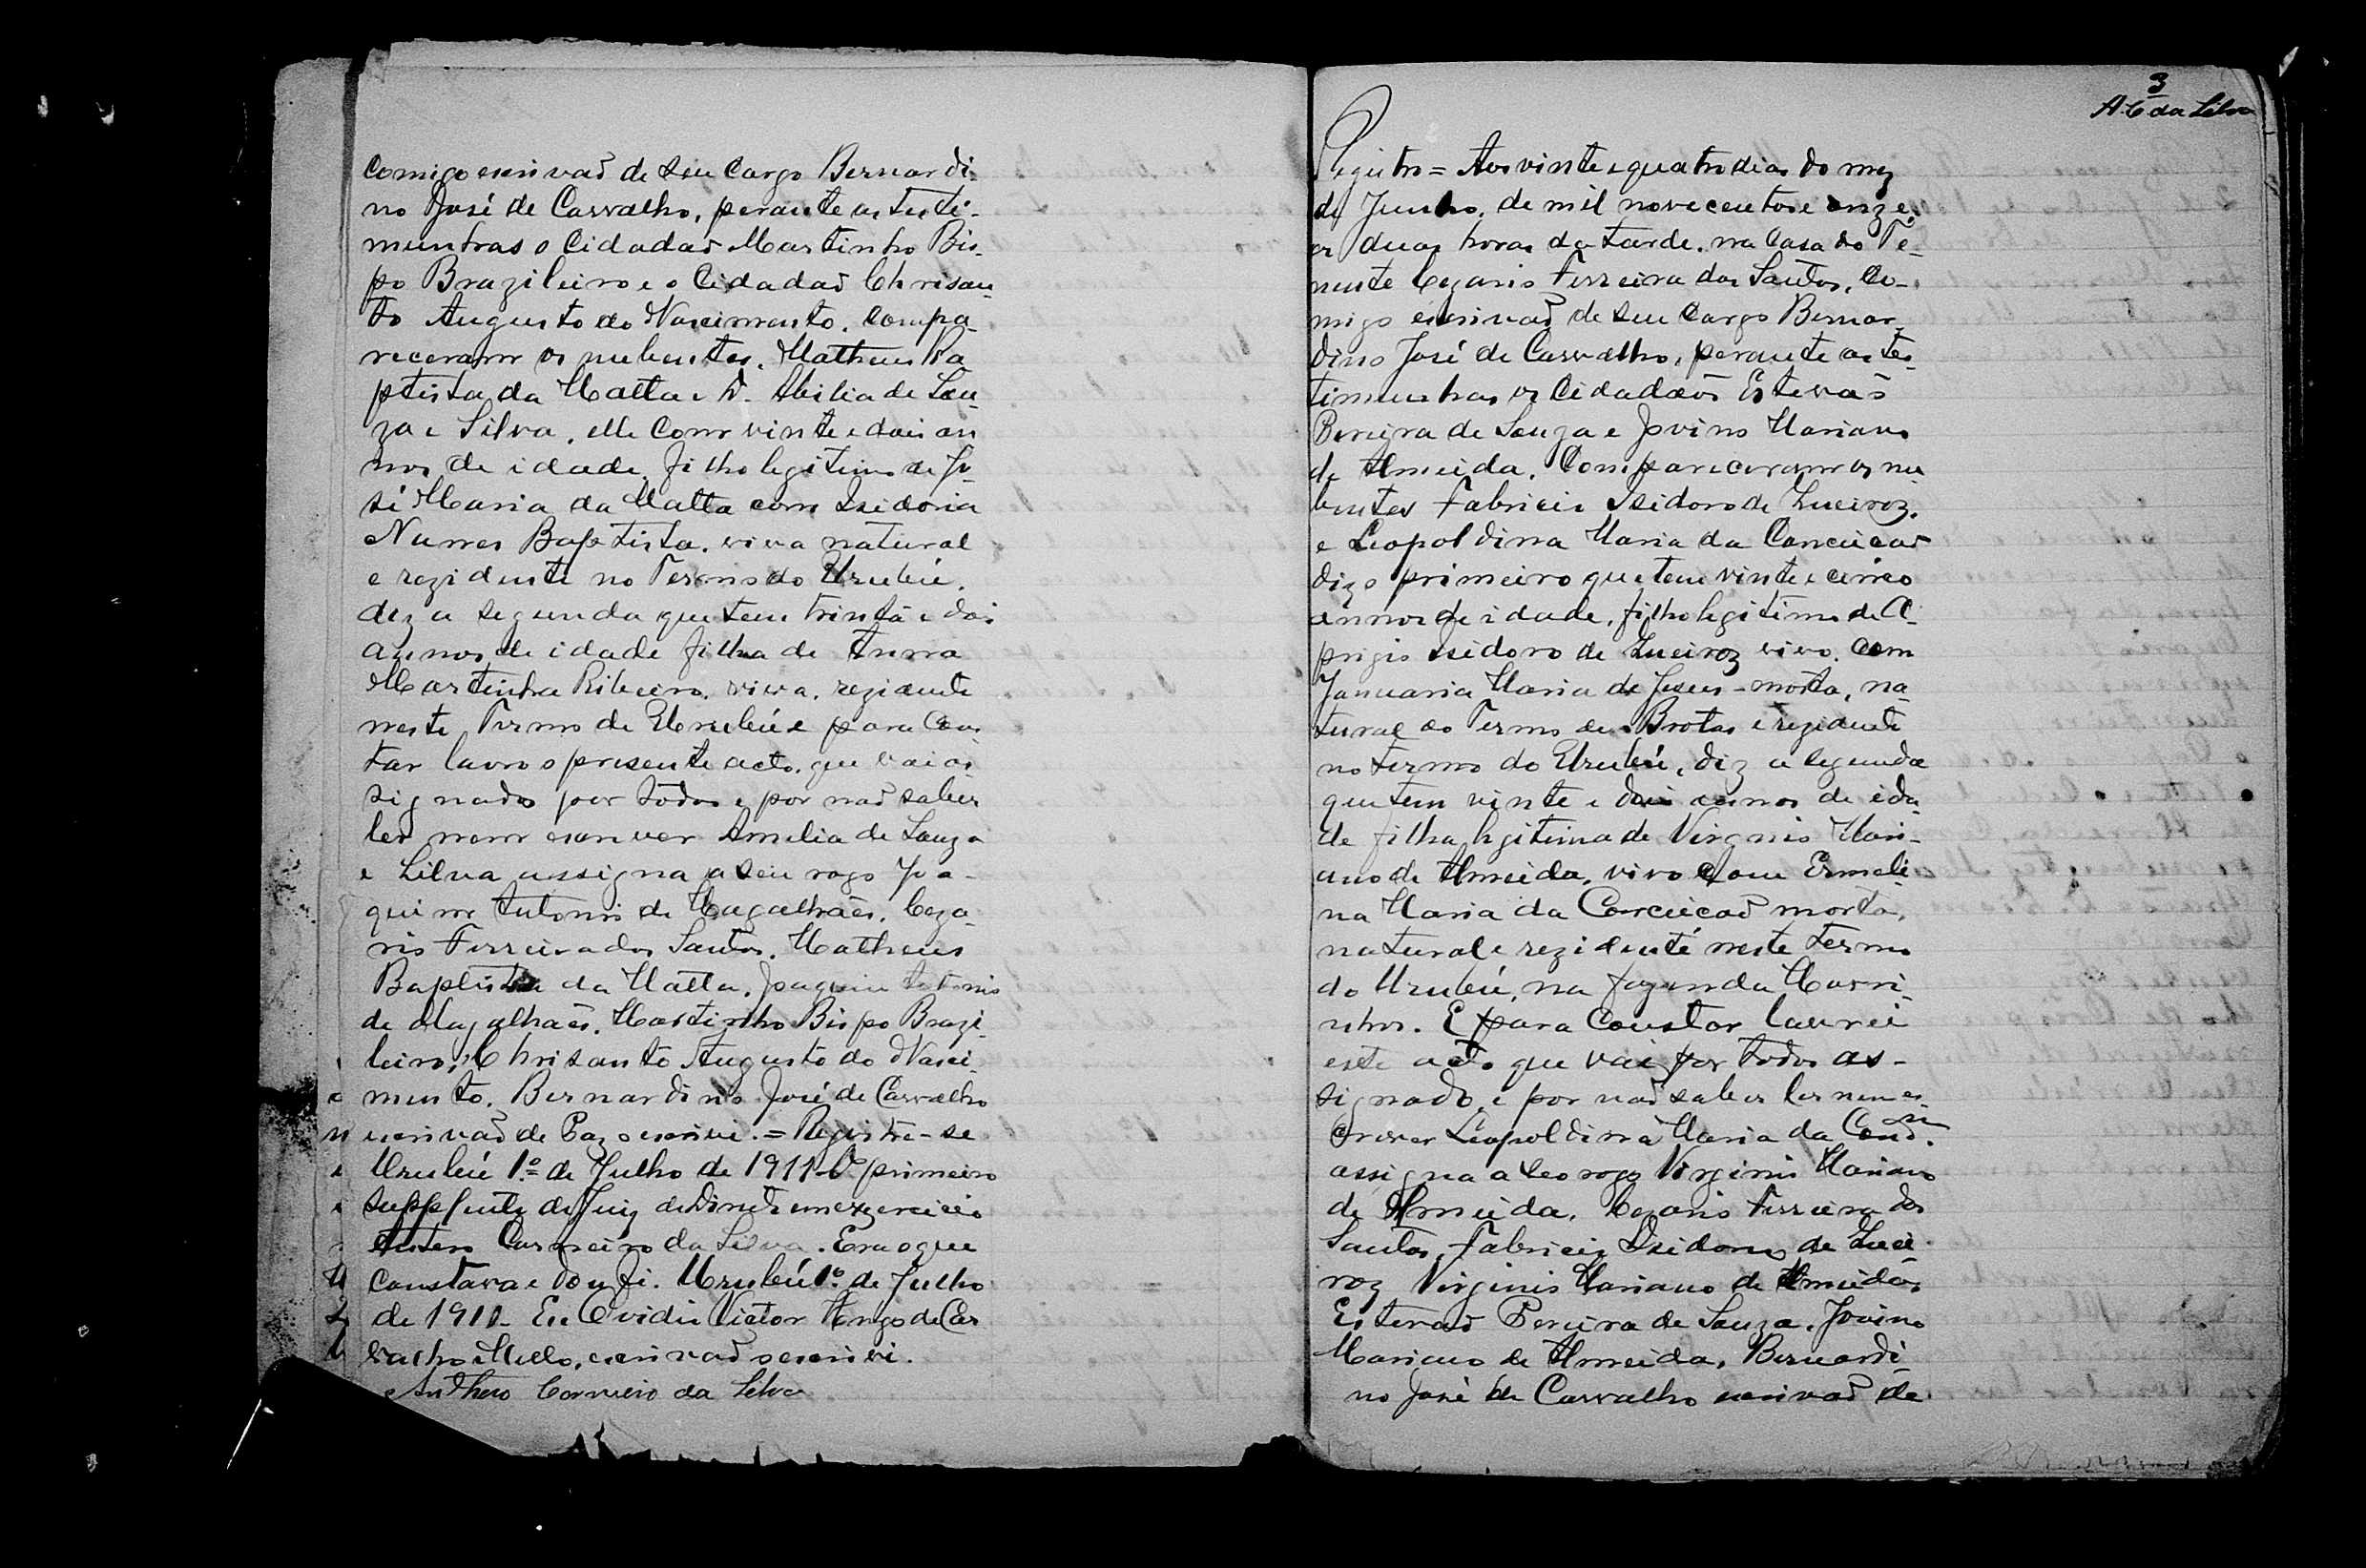 comigo escrivaõ de seu cargo Bernardi-
no José de Carvalho, perante as testi-
munhas o Cidadaõ Martinho Bis-
po Brazileiro e o Cidadaõ Chrisan-
to Augusto do Nascimento. Compa-
receram os nubentes. Matheus Ba
ptista da Matta e D. Abilia de Sou-
za e Silva, elle com vinte e dois an
nos de idade, filho legitimo de Jo-
sé Maria da Matta com Izidoria
Nunes Baptista. viva natural
e rezidente no Termo do Urubú.
diz a segunda que tem trinta e dois
annos de idade filha de Anna
Martinha Ribeiro. viva. rezidente
neste Termo de Urubú e para Cons
tar lavro o presente acto. que vai as-
signado por todos e por naõ saber
ler nem escrever Amelia de Souza
e Silva assigna a seu rogo Joa-
quim Antonio de Magalhães. Ceza-
rio Ferreira dos Santos. Matheus
Baptista da Matta. Joaquim Antonio
de Magalhães. Martinho Bispo Brazi-
leiro, Chrisanto Augusto do Nasci-
mento. Bernardino José de Carvalho
escrivaõ de Paz o escrivi. = Registre-se
Urubú 1º de Julho de 1911 O primeiro
supplente do Juiz de Direito em exzercicio
Antero Carneiro da Silva. Era o que
constava e dou fé. Urubú 1º de Julho
de 1911- Eu Ovidio Victor Hugo de Car
valho e Mello, escrivaõ o escrivi.
Anthero Carneiro da Silva
3
A C da Silva
Registro = Aos vinte e quatro dias do mez
de Junho. de mil novecentos e onze.
as duas horas da tarde. na Casa do Te-
nente Cezario Ferreira dos Santos, Co-
migo escrivaõ de seu Cargo Bernar-
dino José de Carvalho, perante as tes-
timunhas os Cidadãos Estevaõ
Pereira de Souza e Jovino Mariano
de Almeida. Compareceram os nu
bentes Fabricio Izidoro de Queiroz.
e Leopoldina Maria da Conceicaõ
diz o primeiro que tem vinte e cinco
annos de idade, filho legitimo de A-
prigio Izidoro de Queiroz vivo. com
Januaria Maria de Jesus - morta, na-
tural do Termo de Brotas e rezidente
no termo do Urubú, diz a segunda
que tem vinte e dois annos de ida
de filha legitima de Virginio Mari-
ano de Almeida, vivo com Ermeli-
na Maria da Conceicaõ morta,
natural e rezidente neste termo
do Urubú, na fazenda Marri-
nhos. E para Constar lavrei
este acto que vai por todos as-
signado, e por naõ saber ler nem es-
crever Leopoldina Maria da Concam.
assigna a seo rogo Virginio Mariano
de Almeida. Cezario Ferreira dos
Santos, Fabricio Izidoro de Quei-
roz Virginio Mariano de Almeida,
Estevaõ Pereira de Souza. Jovino
Mariano de Almeida, Bernardi-
no José de Carvalho escrivaõ de